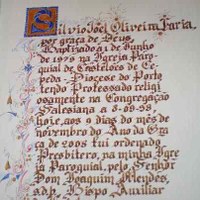 Sílvio Joel Oliveira Faria,
por graça de Deus,
Baptizado a 21 de Junho
de 1979 na Igreja Paro-
quial de Castelões de Ce-
peda - Diocese do Porto
tendo Professado religi-
osamente na Congregação
Salesiana a 8-09-98,
hoje, aos 9 dias do mês de
novembro do Ano da Gra-
ça de 2008 fui ordenado
Presbítero, na minha Igre-
ja Paroquial, pelo Senhor
Dom Joaquim Mendes,
sdb, Bispo Auxiliar